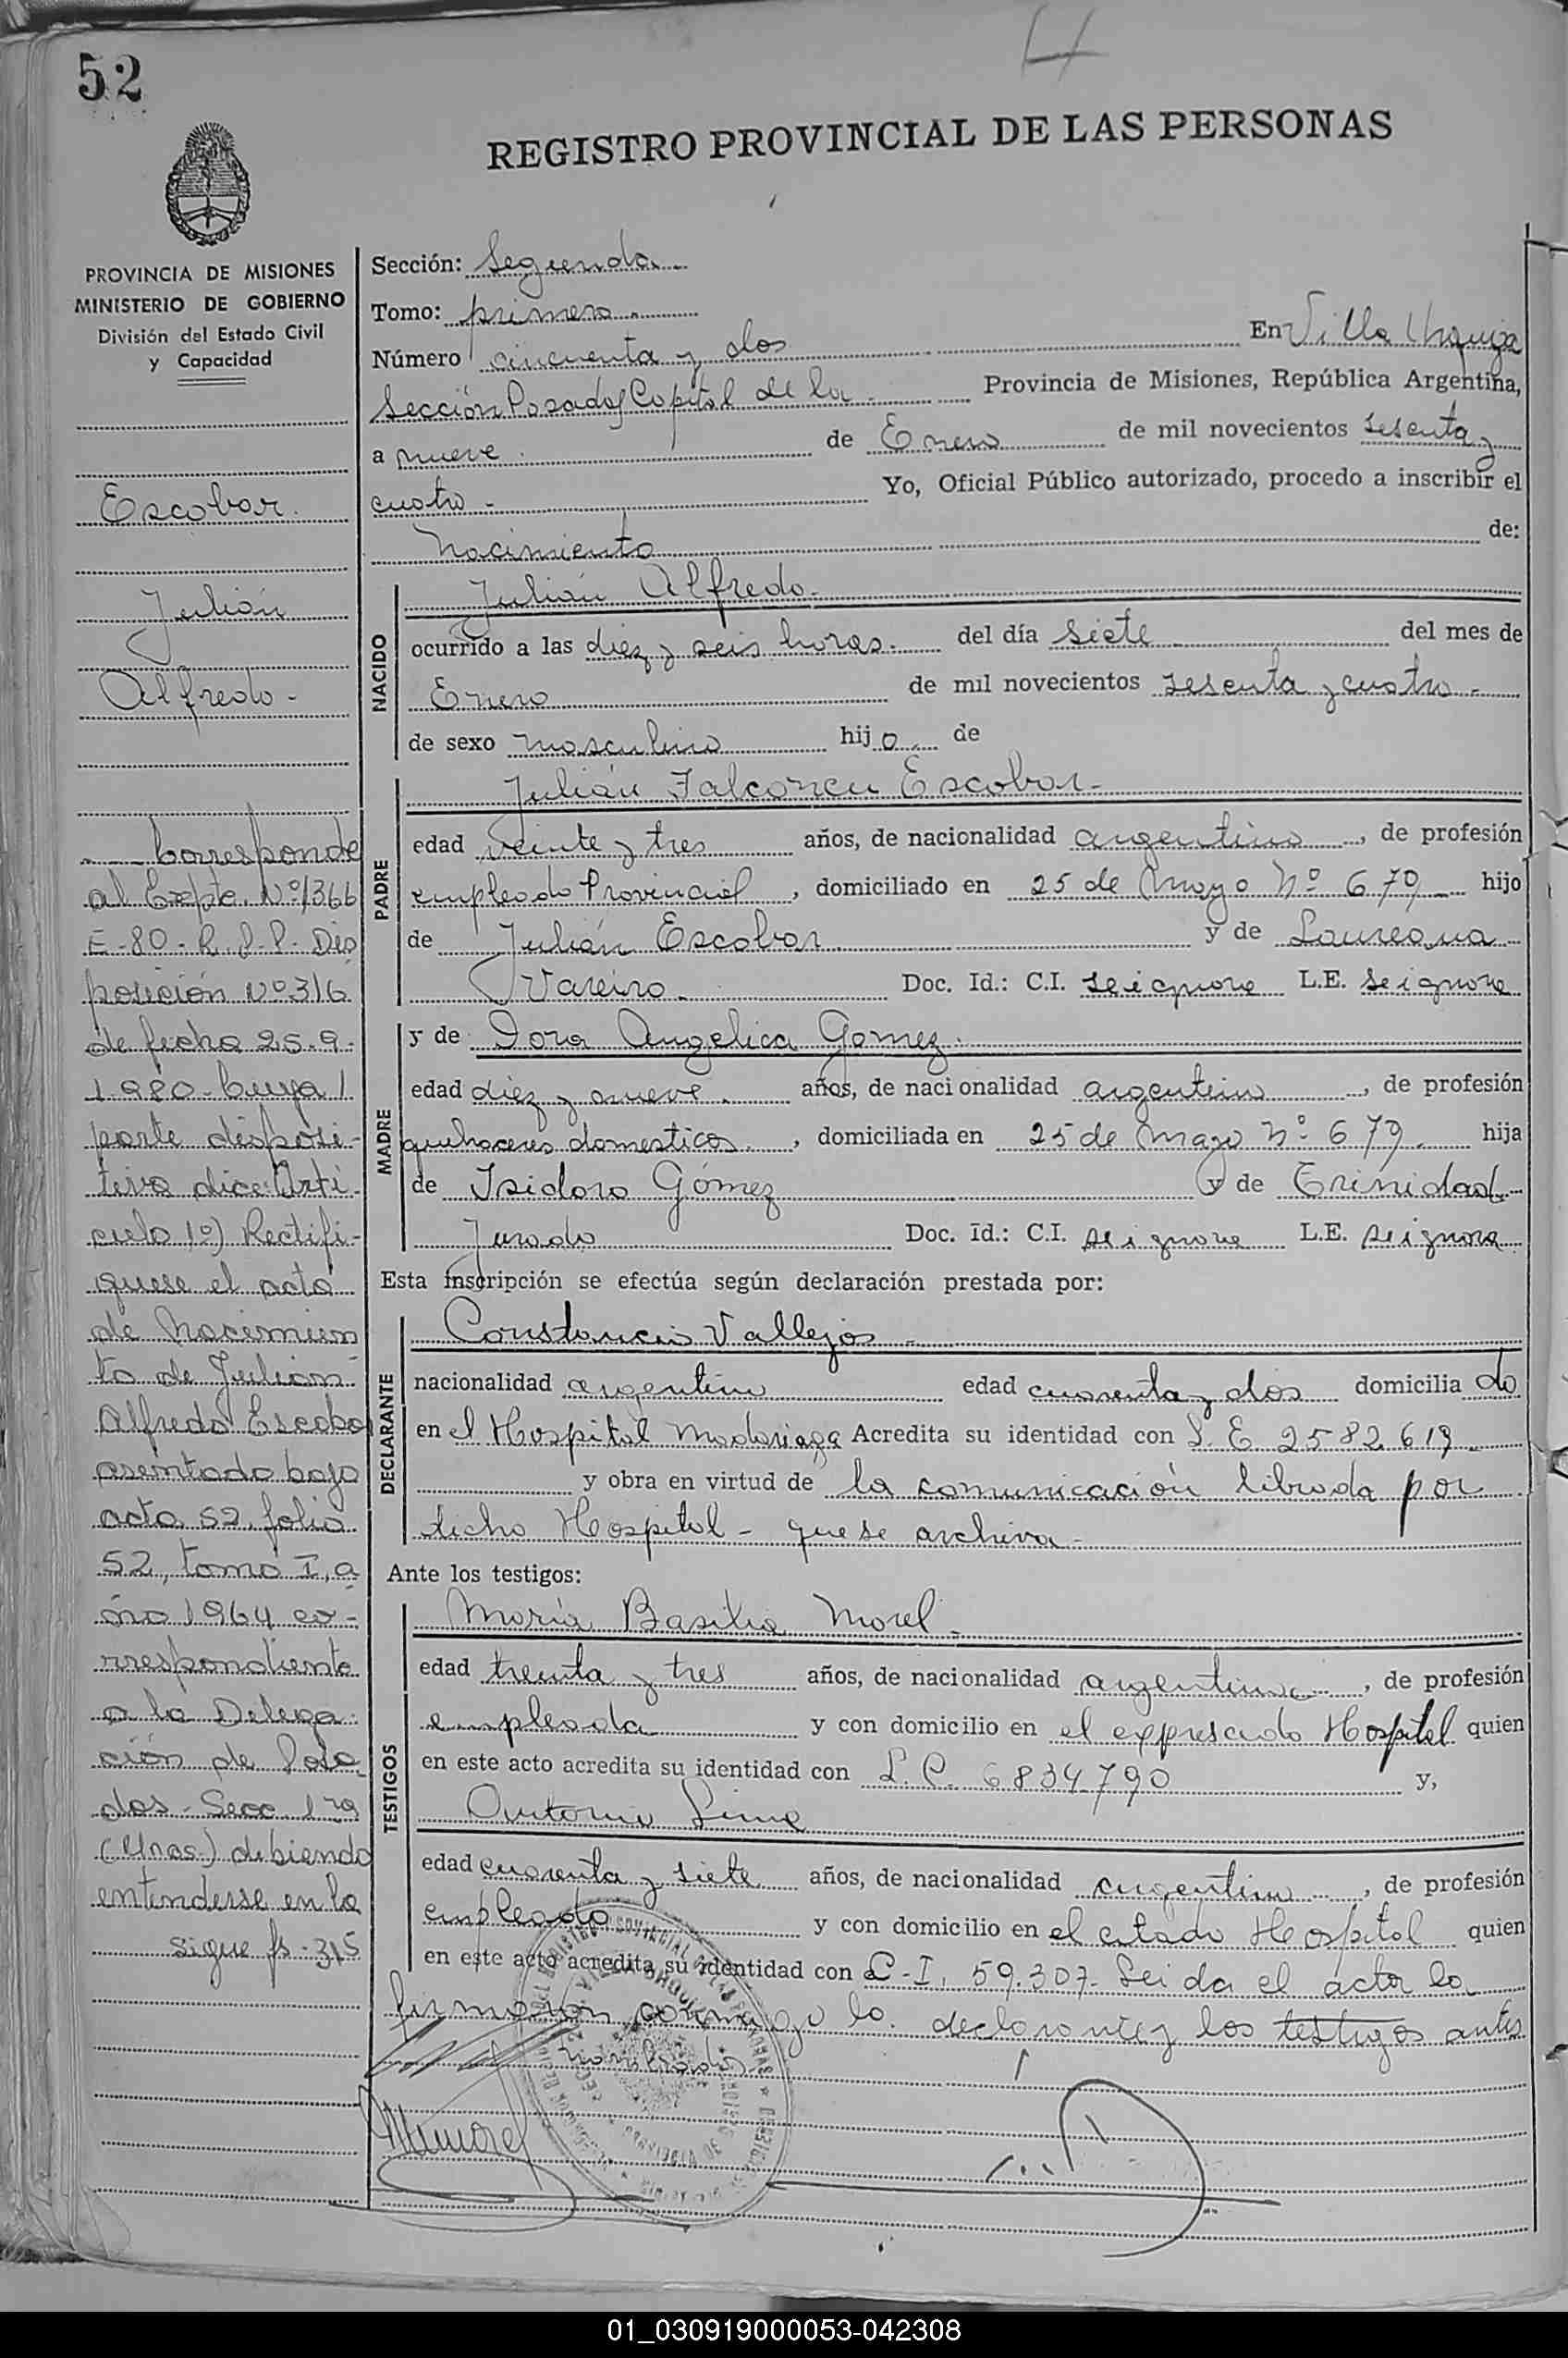 52
REGISTRO PROVINCIAL DE LAS PERSONAS
PROVINCIA DE MISIONES
MINISTERIO DE GOBIERNO
División del Estado Civil
y Capacidad
Escobar.
Julián
Alfredo -
Corresponde
al Expte. Nº 1366
E-80- R.P.P. Dis
posición Nº 316
de fecha 25.9.
1.980- Cuya /
parte disposi-
tiva dice: Artí-
culo 1º) Rectifi-
quese el acta
de Nacimien
to de Julián
Alfredo Escobar
asentado bajo
acta 52, folio
52, tomo I, a
ño 1964 co-
rrespondiente
a la Delega-
ción de Posa
das - Secc. 1ra
(Mnes.) debiendo
entenderse en la
sigue fs - 315
Sección: Segunda.
Tomo: primero.
Número cincuenta y dos En Villa Urquiza
Sección Posadas Capital de la Provincia de Misiones, República Argentina,
a nueve. de Enero de mil novecientos sesenta y
cuatro - Yo, Oficial Público autorizado, procedo a inscribir el
Nacimiento de:
NACIDO
Julián Alfredo.
ocurrido a las diez y seis horas. del día siete del mes de
Enero de mil novecientos sesenta y cuatro -
de sexo masculino hijo de
PADRE
Julián Falconeu Escobar-
edad veinte y tres años, de nacionalidad argentino, de profesión
empleado Provincial, domiciliado en 25 de Mayo Nº 679 hijo
de Julián Escobar y de Laureana
Vareiro. Doc. Id.: C.I. se ignora L.E. se ignora
MADRE
y de Dora Angelica Gomez.
edad diez y nueve. años, de nacionalidad argentina, de profesión
quehaceres domesticos, domiciliada en 25 de Mayo Nº 679. hija
de Isidoro Gómez y de Trinidad
Jurado Doc. Id.: C.I. se ignora L.E. se ignora
Esta inscripción se efectúa según declaración prestada por:
DECLARANTE
Constancio Vallejos
nacionalidad argentino edad cuarenta y dos domiciliado
en el Hospital Madariaga Acredita su identidad con L. E 2582.619
y obra en virtud de la comunicación librada por
dicho Hospital - que se archiva -
Ante los testigos:
TESTIGOS
María Basilia Morel.
edad treinta y tres años, de nacionalidad argentina, de profesión
empleada y con domicilio en el expresado Hospital quien
en este acto acredita su identidad con L.C. 6834790 y,
Antonio Lima
edad cuarenta y siete años, de nacionalidad argentino, de profesión
empleado y con domicilio en el citado Hospital quien
en este acto acredita su identidad con C-I. 59.307- Leida el acta la
firmaron conmigo la declarante y los testigos antes
nombrados.
01_030919000053-042308